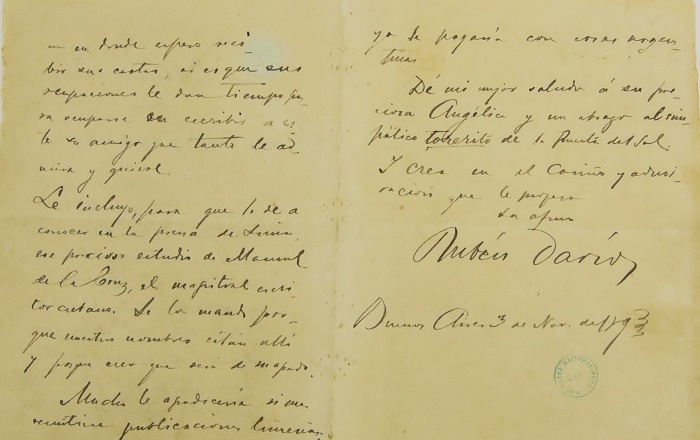 en donde espero reci-
bir sus cartas, si es que sus
ocupaciones le dan tiempo pa-
ra ocuparse en escribir a es-
te su amigo que tanto le ad-
mira y quiere.
Le incluyo, para que lo dé a
conocer en la prensa de Lima,
ese precioso estudio de Manuel
de la Cruz, el magistral escri-
tor cubano. Se lo mando por-
que nuestros nombres están allí
y porque creo que será de su agrado.
Mucho le agradecería si me
remitiera publicaciones limeñas,
yo le pagaría con cosas argen-
tinas
Dé mis mejor saludo á su pre-
ciosa Angélica y un abrazo al sim-
pático torerito de la Puerta del Sol.
I crea en el cariño y admi-
ración que le profesa
su afmo
Rubén Darío
Buenos Aires 3 de Nov. de